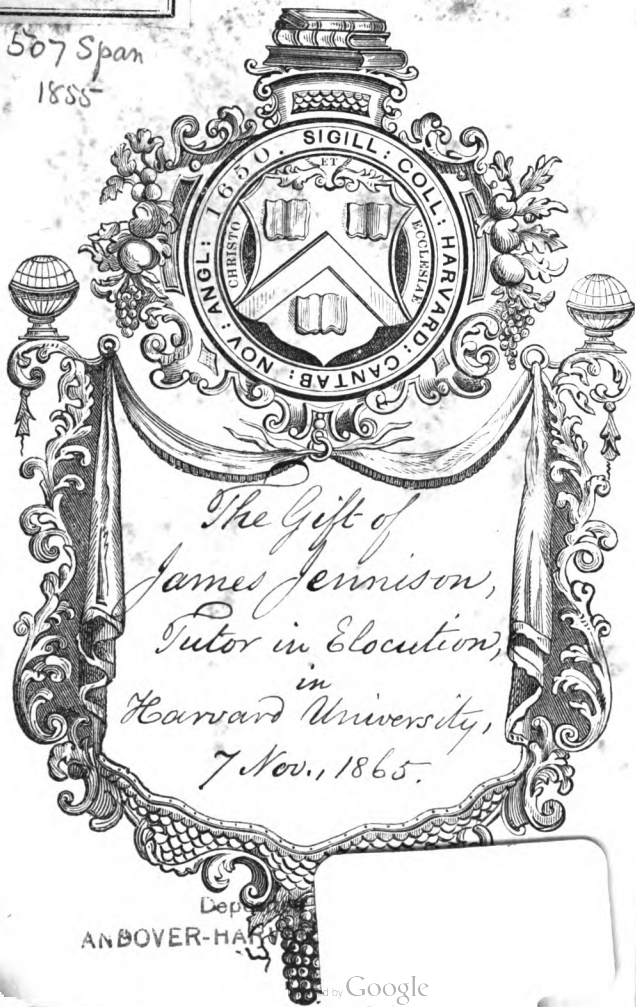 507 Span
1855
SIGILL: COLL: HARVARD: CANTAB: NOV: ANGL: 1650.
CHRISTO ET ECCLESIAE
The Gift of
James Jennison,
Tutor in Elocution,
in
Harvard University,
7 Nov., 1865.
ANDOVER-HAR
by Google